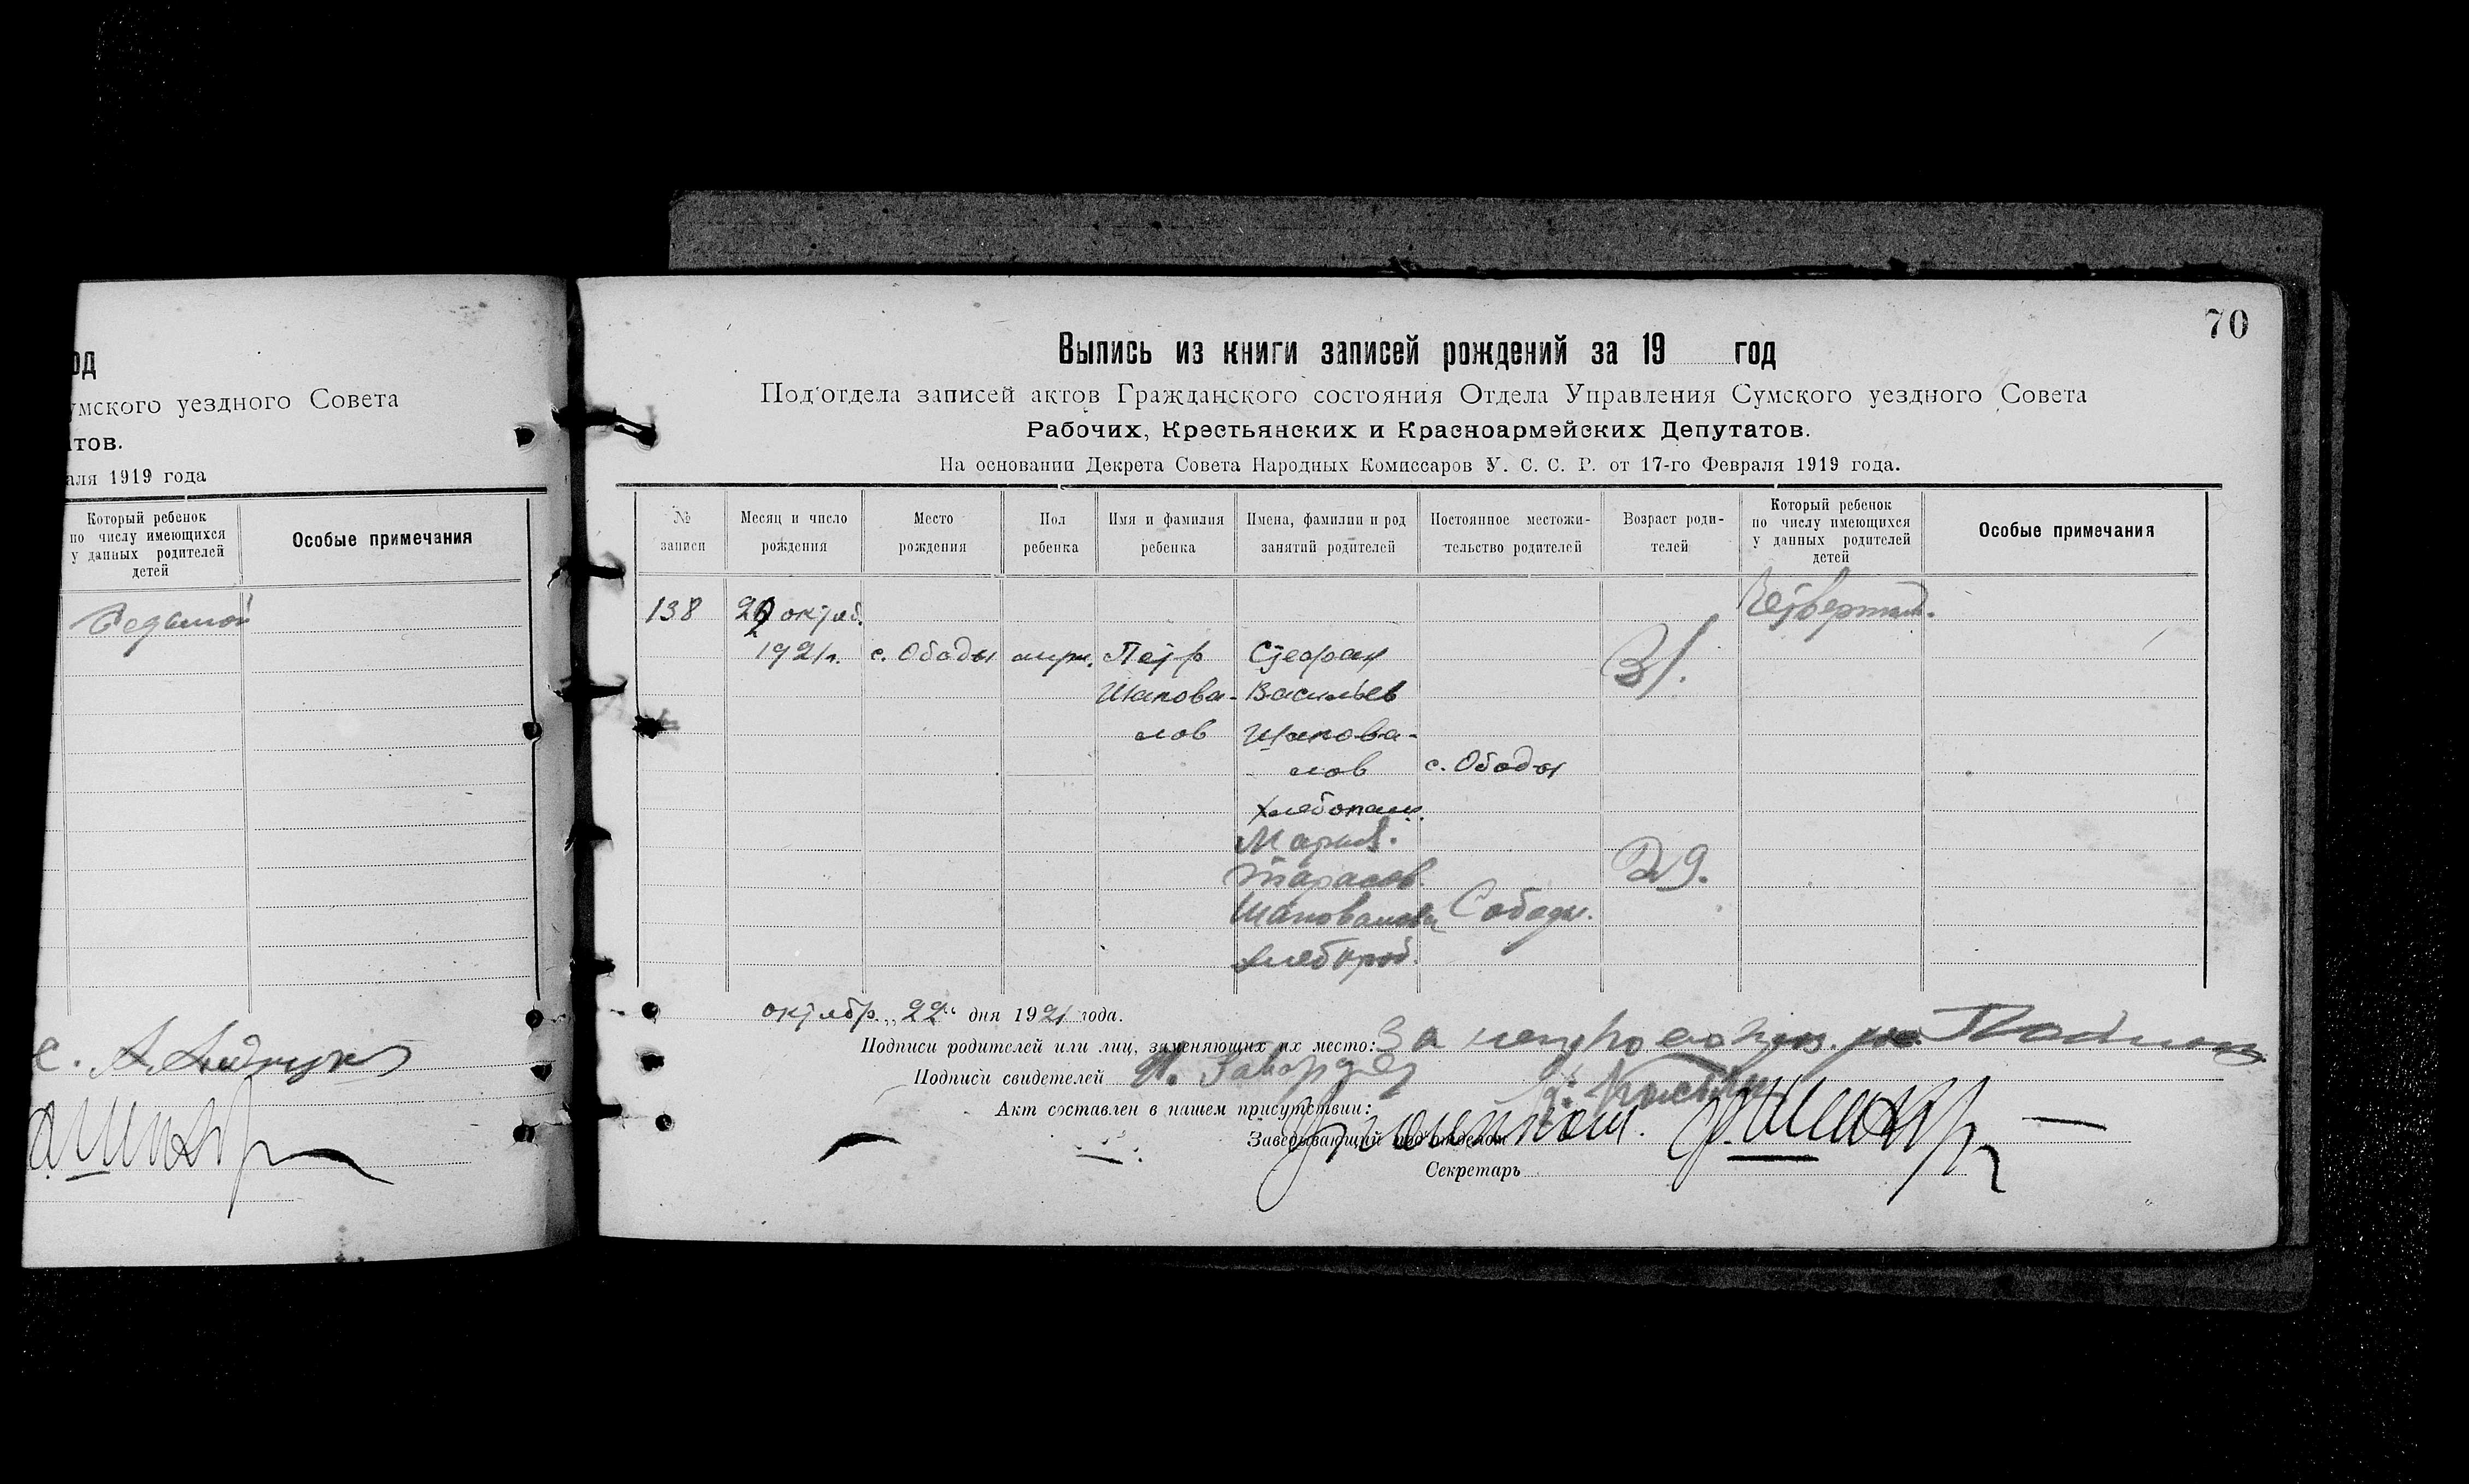 од
умского уездного Совета
тов.
аля 1919 года
Который ребенок
по числу имеющихся
у данных родителей
детей
Особые примечания
Седьмой
70
Выпись из книги записей рождений за 19 год
Под'отдела записей актов Гражданского состояния Отдела Управления Сумского уездного Совета
Рабочих, Крестьянских и Красноармейских Депутатов.
На основании Декрета Совета Народных Комиссаров У. С. С. Р. от 17-го Февраля 1919 года.
№
записи
Месяц и число
рождения
Место
рождения
Пол
ребенка
Имя и фамилия
ребенка
Имена, фамилии и род
занятий родителей
Постоянное местожи-
тельство родителей
Возраст роди-
телей
Который ребенок
по числу имеющихся
у данных родителей
детей
Особые примечания
138 октяб.
1921г. с. Ободы Петр Стефан 31.
Шапова- Васильев
лов Шапова-
лов с. Ободы
хлебопаш.
Мария.
Тарасов. 29.
Шаповалова С Ободы.
хлебороб.
октябр. „22" дня 1921 года.
Подписи родителей или лиц, заменяющих их место: За
Подписи свидетелей
Акт составлен в нашем присутствии:
Заведывающий под'отделом
Секретарь